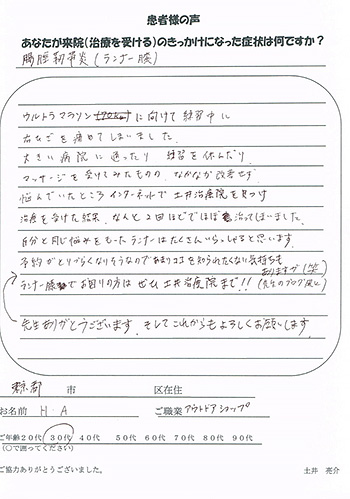 患者様の声
あなたが来院(治療を受ける)のきっかけになった症状は何ですか?
腸脛靭帯炎(ランナー膝)
ウルトラマラソン に向けて練習中に
右ひざを痛めてしまいました。
大きい病院に通ったり 練習を休んだり
マッサージを受けてみたものの、なかなか改善せず
悩んでいたところ インターネットで 土井治療院を見つけ
治療を受けた結果、なんと2回ほどでほぼ 治ってしまいました。
自分と同じ悩みをもったランナーはたくさんいらっしゃると思います。
予約がとりづらくなりそうなのであまり口コミを知られたくない気持ちも
ありますが(笑)
ランナー膝 でお困りの方は ぜひ 土井治療院まで!! (先生のブログ風に)
先生ありがとうございます。そしてこれからもよろしくお願いします。
東京都 市 区在住
お名前 H.A ご職業 アウトドアショップ
ご年齢20代 30代 40代 50代 60代 70代 80代 90代
(○で囲ってください)
ご協力ありがとうございました。 土井 亮介